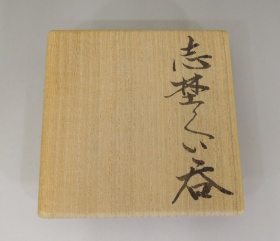 志埜ぐい呑